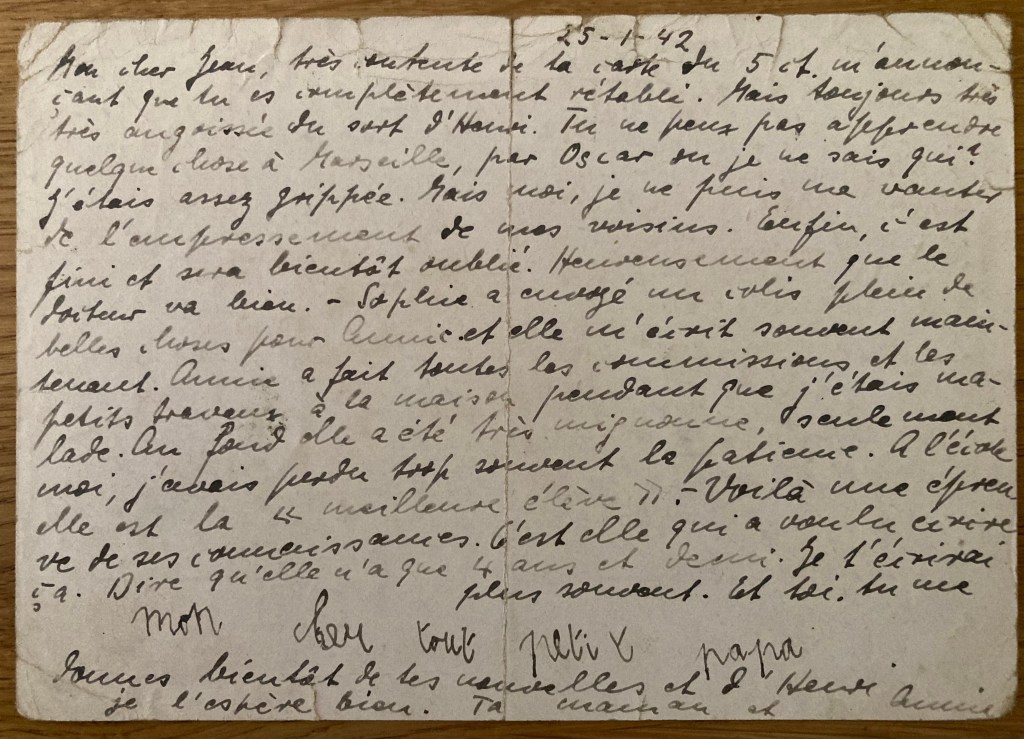 25-1-42
Mon cher Jean, très contente de ta carte du 5 ct. m'annon-
çant que tu es complètement rétabli. Mais toujours très
très angoissée du sort d'Henri. Tu ne peux pas apprendre
quelque chose à Marseille, par Oscar ou je ne sais qui?
J'étais assez grippée. Mais moi, je ne puis me vanter
de l'empressement de mes voisins. Enfin, c'est
fini et sera bientôt oublié. Heureusement que le
docteur va bien. - Sophie a envoyé un colis plein de
belles choses pour Annie et elle m'écrit souvent main-
tenant. Annie a fait toutes les commissions et les
petits travaux à la maison pendant que j'étais ma-
lade. Au fond elle a été très mignonne, seulement
moi, j'avais perdu trop souvent la patience. A l'école
elle est la « meilleure élève ». - Voilà une épreu
ve de ses connaissances. C'est elle qui a voulu écrire
ça. Dire qu'elle n'a que 4 ans et demi. Je t'écrirai
plus souvent. Et toi, tu me
mon cher tout petit papa
donnes bientôt de tes nouvelles et d'Henri
je l'espère bien. Ta maman et Annie